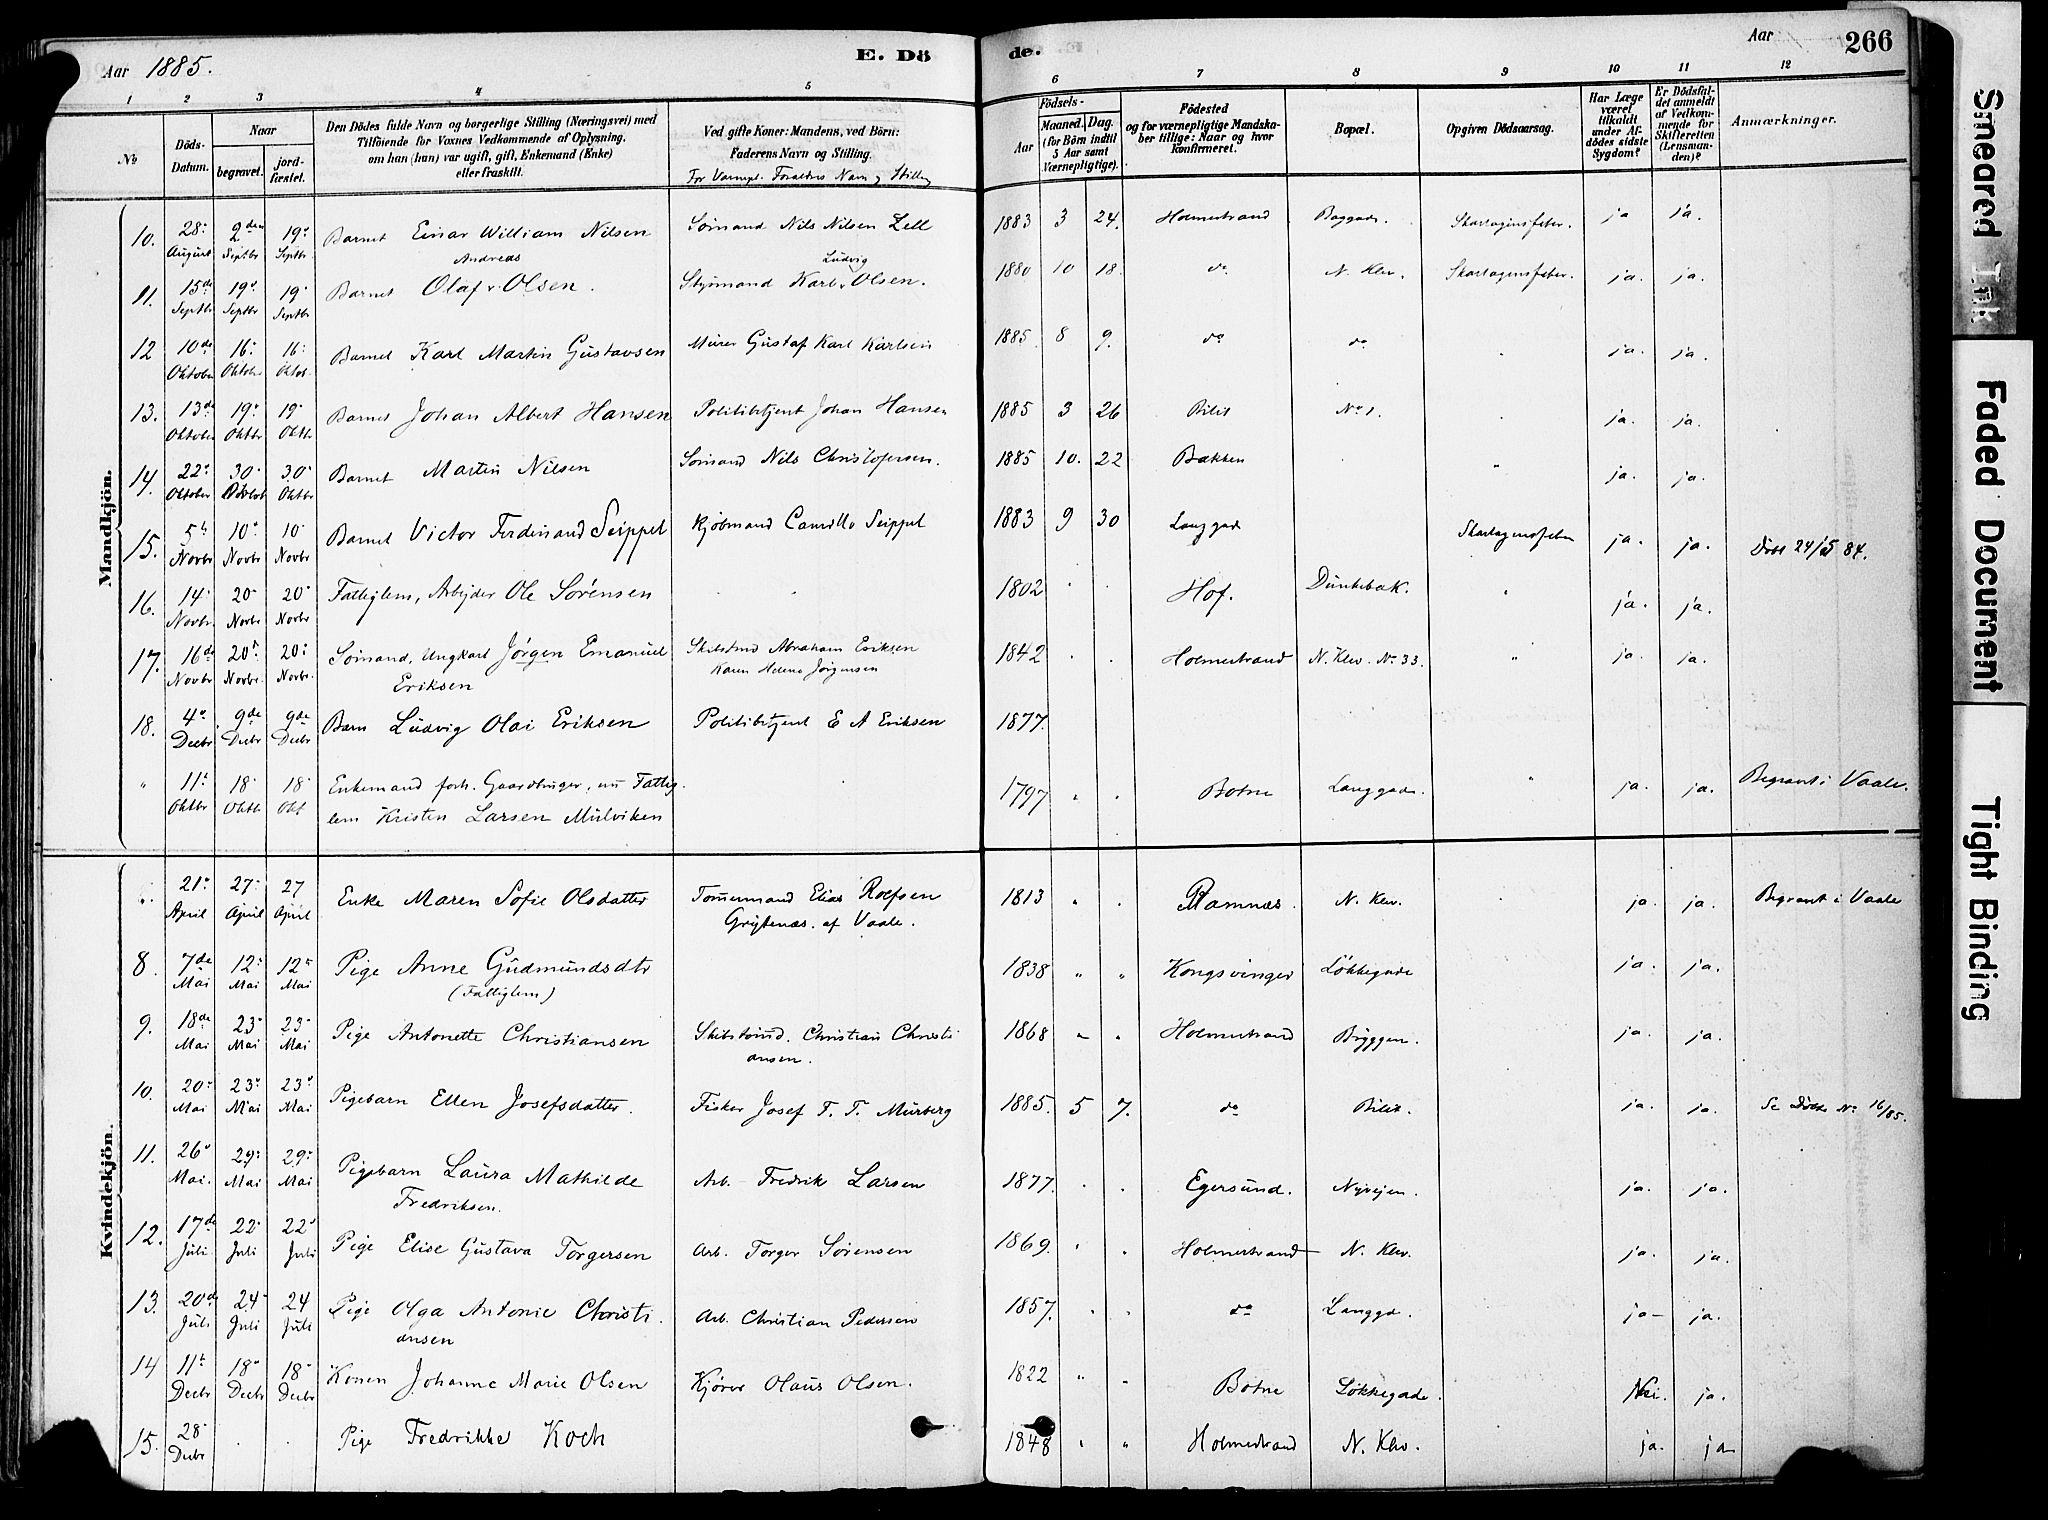 Aar 1885. E. Dö de. Aar 266
1 2 3 4 5 6 7 8 9 10 11 12
No
Döds-Datum.
Naar
begravet.
jord-fæstet.
Den Dödes fulde Navn og borgerlige Stilling (Næringsvei) med
Tilföiende for Voxnes Vedkommende af Oplysning,
om han (hun) var ugift, gift, Enkemand (Enke)
eller fraskilt.
Ved gifte Koner: Mandens, ved Börn:
Faderens Navn og Stilling.
For Værnepl. Forældres Navn og Stilling
Födsels-
Aar
Maaned. Dag.
(for Börn indtil
5 Aar samt
Værnepligtige).
Födested
og for værnepligtige Mandska-
ber tillige: Naar og hvor
konfirmeret.
Bopæl.
Opgiven Dödsaarsag.
Har Læge
været
tilkaldt
under Af-
dödes sidste
Sygdom?
Er Dödsfal-
det anmeldt
af Vedkom-
mende for
Skifteretten
(Lensman-
den)?
Anmærkninger.
Mandkjön.
10. 28. August 2den Septbr 19. Septbr Barnet Einar William Nilsen Sömand Nils Nilsen Zell 1883 3 24. Holmestrand Baggade. Skarlagensfeber. ja ja.
11. 15de Septbr 19. Septbr 19. Septbr Barnet Olaf Andreas Olsen. Styrmand Karl Ludvig Olsen. 1880 10 18. do N. Klev. Skarlagensfeber. ja. ja.
12 10de Oktober 16. Oktober 16. Oktob. Barnet Karl Martin Gustavsen Murer Gustaf Karl Karlsen 1885. 8 9. do do ja. ja.
13. 13de Oktober 19. Oktbr 19. Oktbr Barnet Johan Albert Hansen Politibetjent Johan Hansen 1885 3 26 Bilit No 1. ja. ja.
14. 22. Oktober 30. 30. Oktbr Barnet Martin Nilsen Sömand Nils Christofersen. 1885 10. 22 Bakken " ja. ja.
15. 5t Novbr 10. Novbr 10 Novbr Barnet Victor Ferdinand Seippel Kjöbmand Camillo Seippel 1883 9 30 Langgad Skarlagensfeber ja. ja. Döbt 24/5 84.
16. 14. Novbr. 20. Novbr 20. Novbr Fattiglem, Arbejder Ole Sörensen 1802 Hof. Dunkebak. " ja. ja.
17. 16de Novbr 20. Novbr. 20. Novbr. Sömand, Ungkarl Jörgen Emanuel
Eriksen Skibstmd Abraham Eriksen
Karen Helene Jörgensen 1842 Holmestrand N. Klev. No 33. " ja. ja.
18. 4. Decbr 9de Decbr 9de Decbr Barn Ludvig Olai Eriksen Politibetjent E A Eriksen 1877.
" 11t Oktbr 18. Oktbr 18. Okt Enkemand forh. Gaardbruger, nu Fattig-
lem Kristen Larsen Mulviken 1797 " Botne Langgade. " ja. ja. Begravet i Vaale.
Kvindekjön.
21. April 27. April 27 April Enke Maren Sofie Olsdatter Tömmermand Elias Rolfsen
Grytenæs. af Vaale. 1813 " Ramnæs. N. Klev. ja. ja. Begravet i Vaale
8. 7de Mai 12. Mai 12. Mai Pige Anne Gudmundsdtr
(Fattiglem) 1838 " " Kongsvinger Lökkegade ja. ja.
9. 18de Mai 23. Mai 23. Mai Pige Antonette Christiansen Skibstömd. Christian Christi
ansen. 1868 " " Holmestrand Bryggen. ja. ja.
10. 20. Mai 23. Mai 23. Mai Pigebarn Ellen Josefsdatter. Fisker Josef T. T. Murberg 1885. 5 7. do Bilit. ja. ja. Se Döbte No 16/85.
11. 26. Mai. 29. Mai 29. Mai Pigebarn Laura Mathilde
Fredriksen. Arb. Fredrik Larsen 1877. Egersund. Nyvejen. ja. ja.
12. 17de Juli 22. Juli 22. Juli Pige Elise Gustava Torgersen Arb. Torger Sörensen 1869. Holmestrand N. Klev. ja. ja.
13. 20de Juli 24. Juli 24 Juli Pige Olga Antonie Christi
ansen Arb. Christian Pedersen 1857. do Langgd. ja. ja.
14 11t Decbr 18. Decbr 18. Decbr Konen Johanne Marie Olsen Kjörer Olaus Olsen. 1822 " " Botne Lökkegade. Nei. ja.
15. 28. Decbr Pige Fredrikke Koch 1848 " " Holmestrand N. Klev. ja. ja
Smeared Ink
Faded Document
Tight Binding